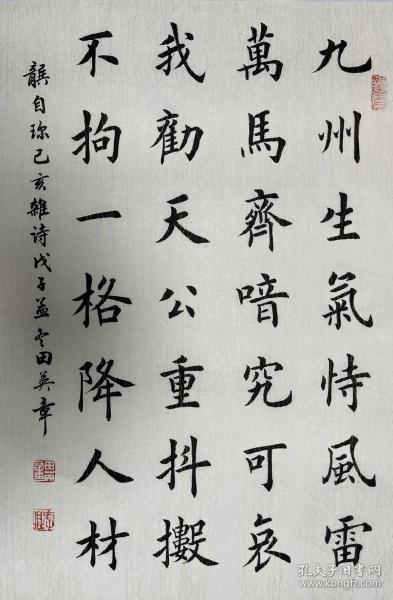 九州生氣恃風雷
萬馬齊喑究可哀
我勸天公重抖擻
不拘一格降人材
龔自珍己亥雜诗戊子孟冬田英章
孔夫子旧书网
www.kongfz.com